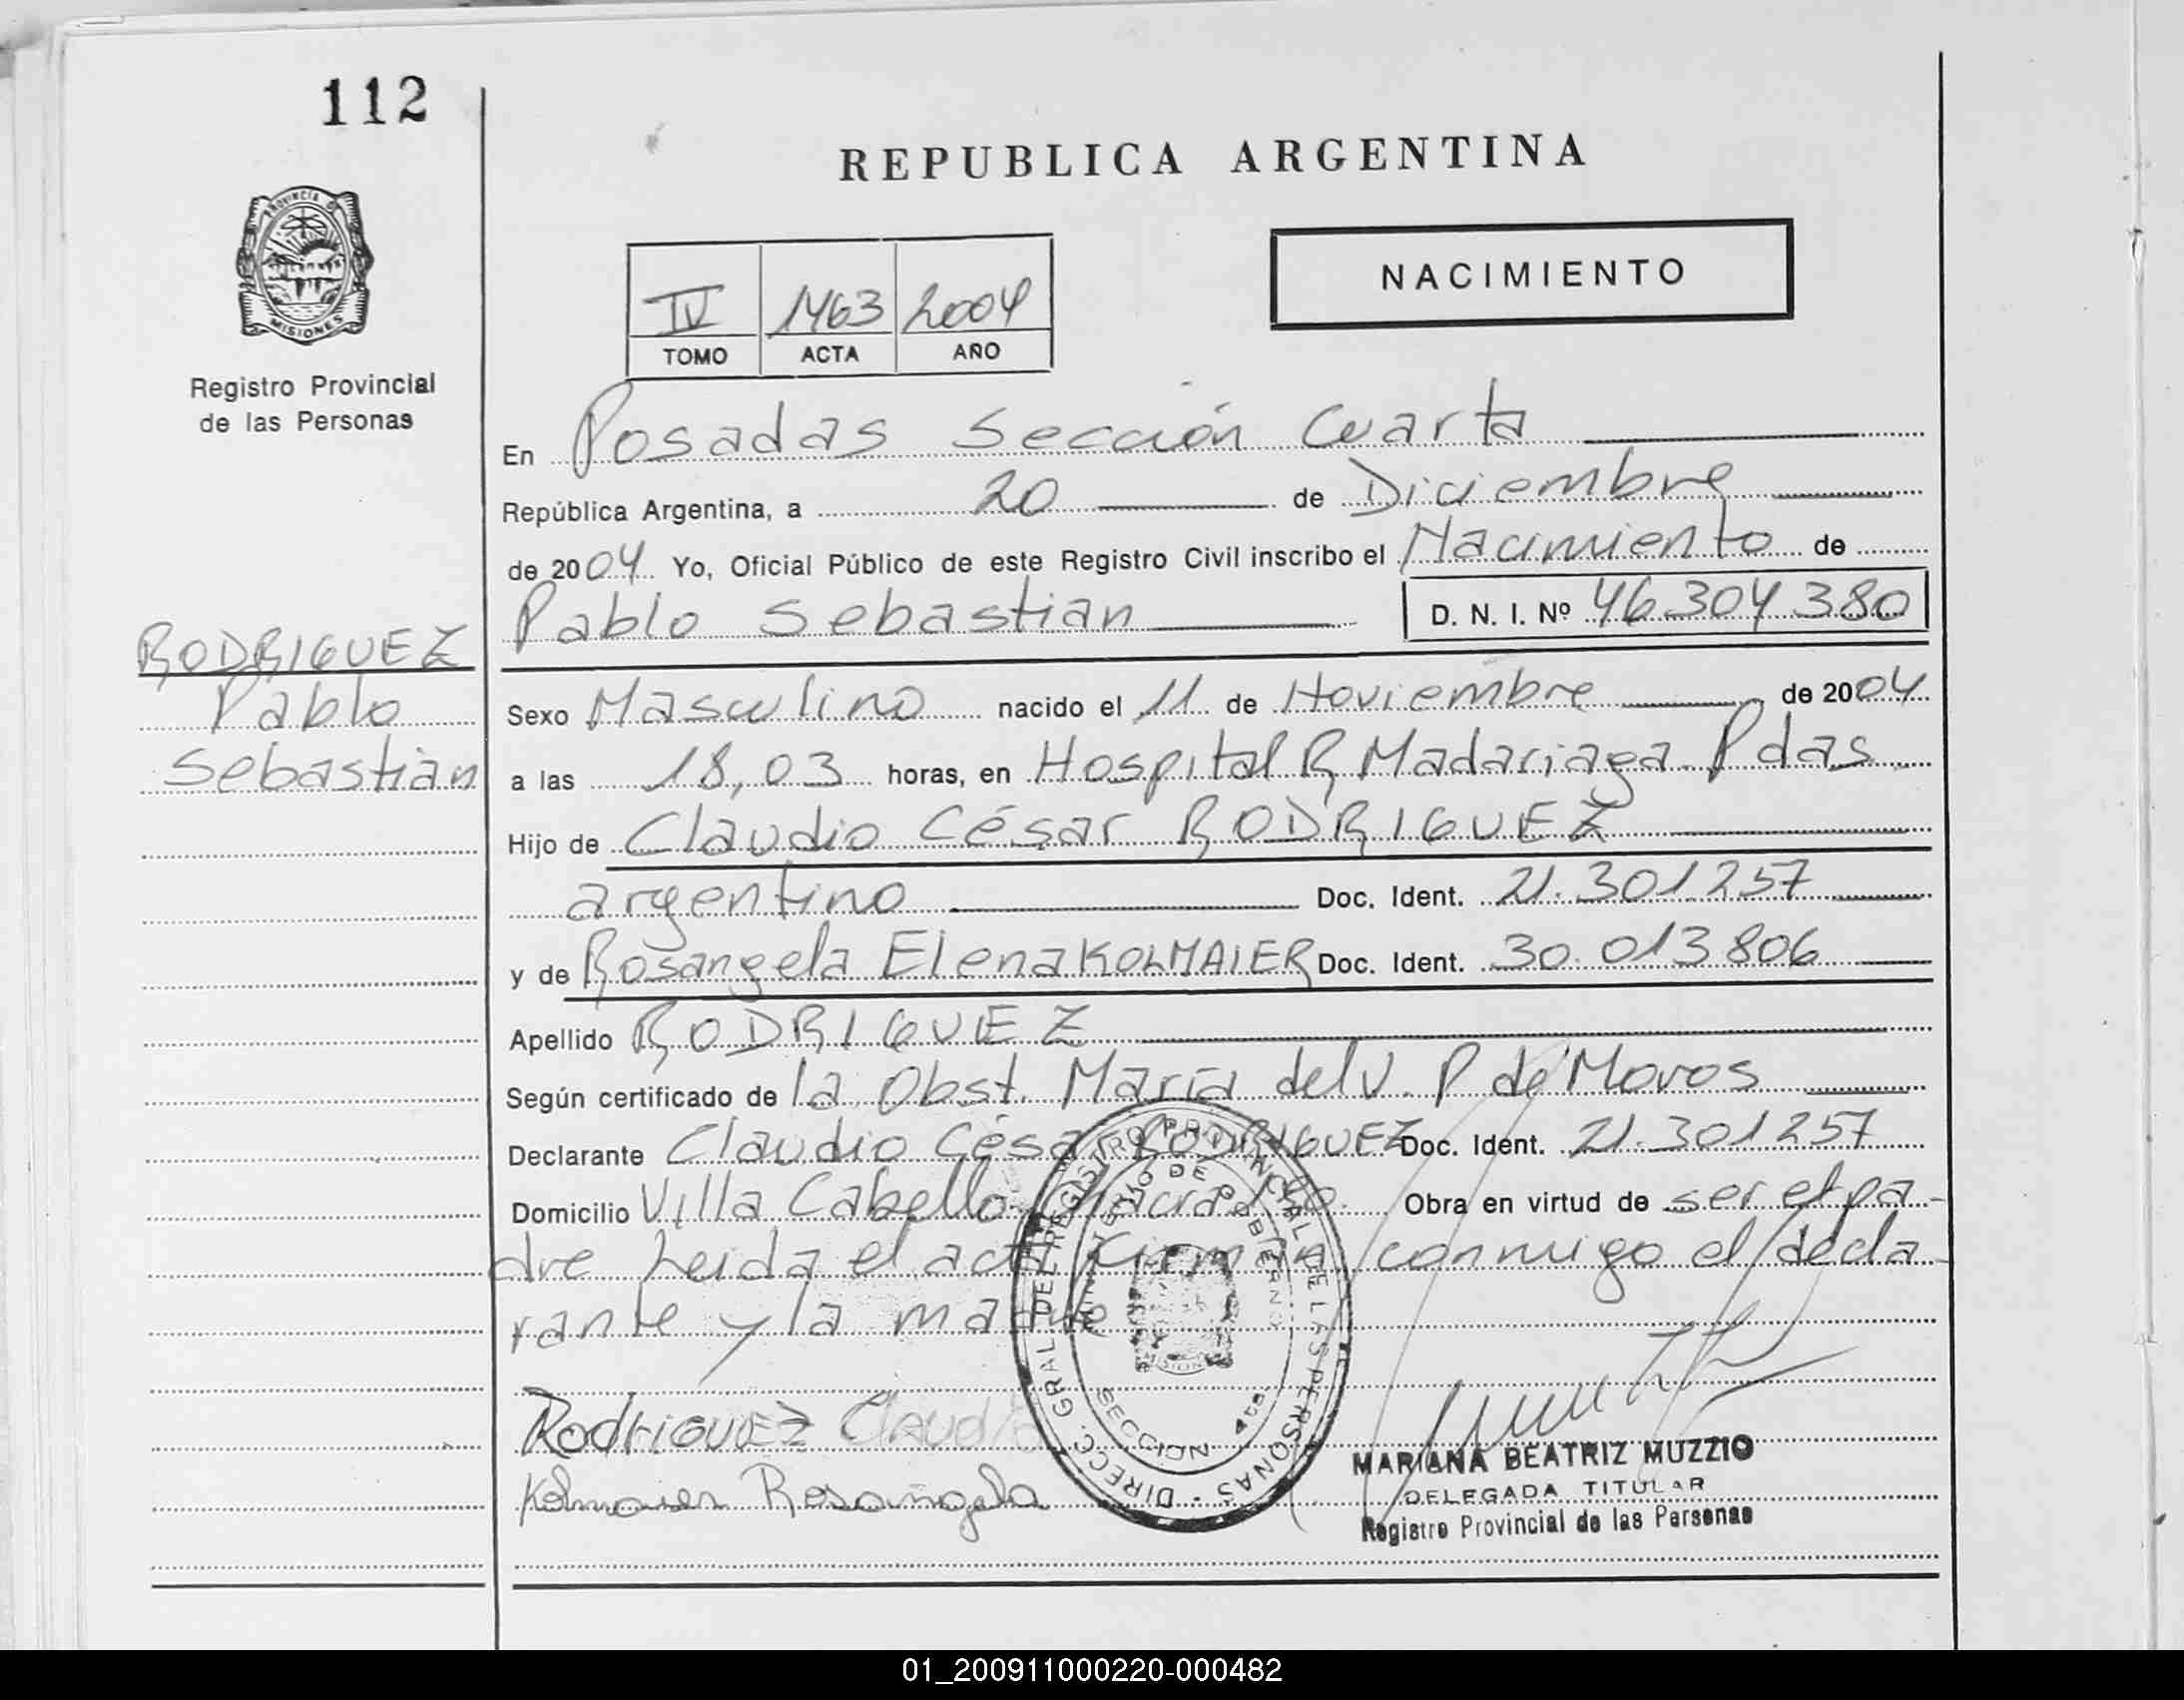 112
REPUBLICA ARGENTINA
PROVINCIA D
MISIONES
NACIMIENTO
IV 1463 2004
TOMO ACTA AÑO
Registro Provincial
de las Personas
En Posadas Sección Cuarta
República Argentina, a 20 de Diciembre
de 2004 Yo, Oficial Público de este Registro Civil inscribo el Nacimiento de
Pablo Sebastian D. N. I. Nº 46.304.380
RODRIGUEZ
Pablo
Sebastian
Sexo Masculino nacido el 11 de Noviembre de 2004
a las 18,03 horas, en Hospital R Madariaga Pdas
Hijo de Claudio César RODRIGUEZ
argentino Doc. Ident. 21.301257
y de Rosangela Elena KOLMAIER Doc. Ident. 30.013806
Apellido RODRIGUEZ
Según certificado de la Obst. María del V. P de Moros
Declarante Claudio César RODRIGUEZ Doc. Ident. 21.301257
Domicilio Villa Cabello Chacra Obra en virtud de ser el pa-
dre Leida el acta firman conmigo el decla-
rante y la madre
DIRECC. GRAL DEL REGISTRO PROVINCIAL DE LAS PERSONAS
MINISTERIO DE GOBIERNO
SECCION 4ta
Rodriguez Claudio
Kolmaier Rosangela
MARIANA BEATRIZ MUZZIO
DELEGADA TITULAR
Registro Provincial de las Personas
01_200911000220-000482